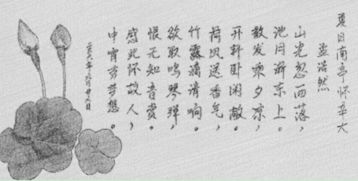 夏日南亭怀辛大
孟浩然
山光忽西落,
池月渐东上。
散发乘夕凉,
开轩卧闲敞。
荷风送香气,
竹露滴清响。
欲取鸣琴弹,
恨无知音赏。
感此怀故人,
中宵劳梦想。